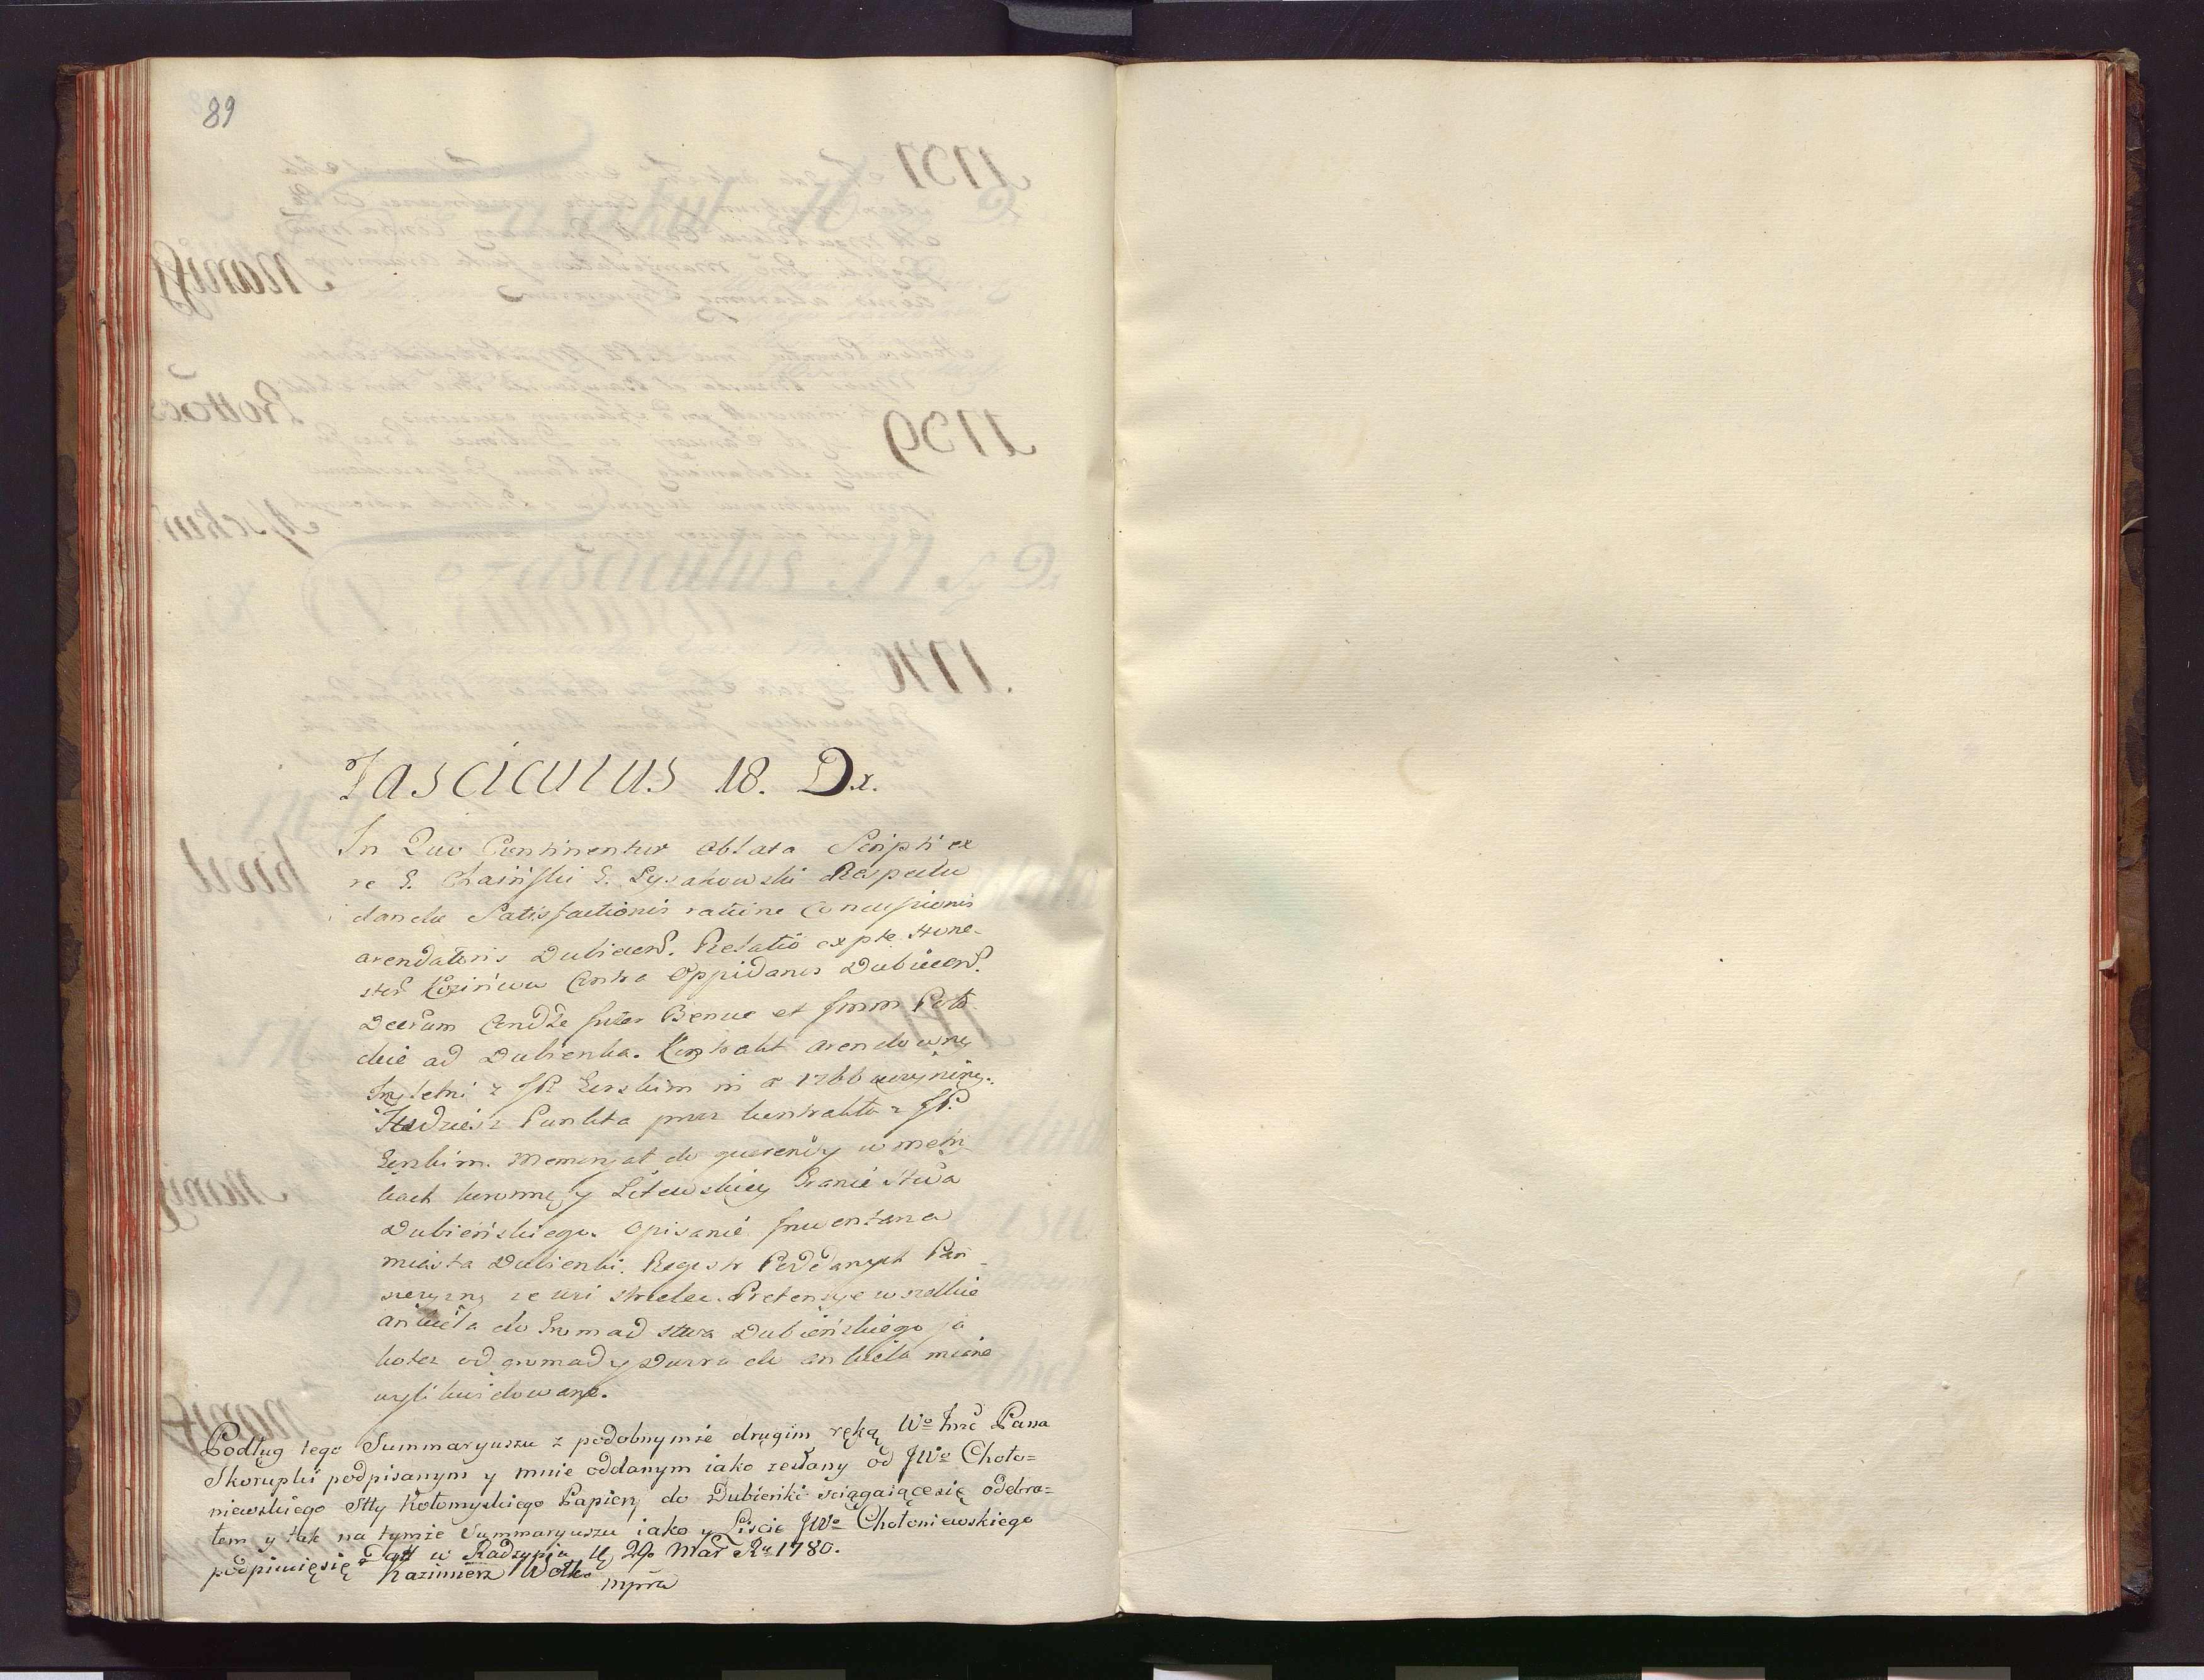 89
Fasciculus 18. Dx.
In Quo Continentur oblata Scripti ex
re G. Chaiński G. Łysakowski Respectu
dandae Satisfactionis ratiōne Concussionis
arendatoris Dubiecen̄. Relatio ex pte Hone-
Contra Oppidanos Dubiecen̄.
Inter Benue et Jmm
ckie ad Dubienka. Kontrakt arendowny
3letni z JP. Gerskim in a͞ 1766 uczyniony.
Tudziesz Punkta przez kontrakta z JP.
Gerskim. Memoryał do querendy w metry
kach koronney y Litewskiey Granic Stwa
Dubieńskiego. Opisanie Inwentarza
miasta Dubienki. Regestr Poddanych Pan
szczyzny ze wsi strzelec. Pretensye wszelkie
ankieta do Gromad stwa Dubieńskiego ja
kotez od gromady Dwora do ankieta miane
wylikwidowane.
Podług tego Summaryuszu z podobnymże drugim ręką Wo Jmć Pana
Skorupki podpisanym y mnie oddanym iako zesłany od JWo Choło=
niewskiego Stty Kołomyskiego Papiery do Dubienki sciągaiącesię odebra=
łem y tak na tymże Summaryuszu iako y Liscie JWo Chołoniewskiego
podpisuięsię Datt w Radzyniu d. 29 Mar̄ Ru 1780.
Kazimierz
mpra